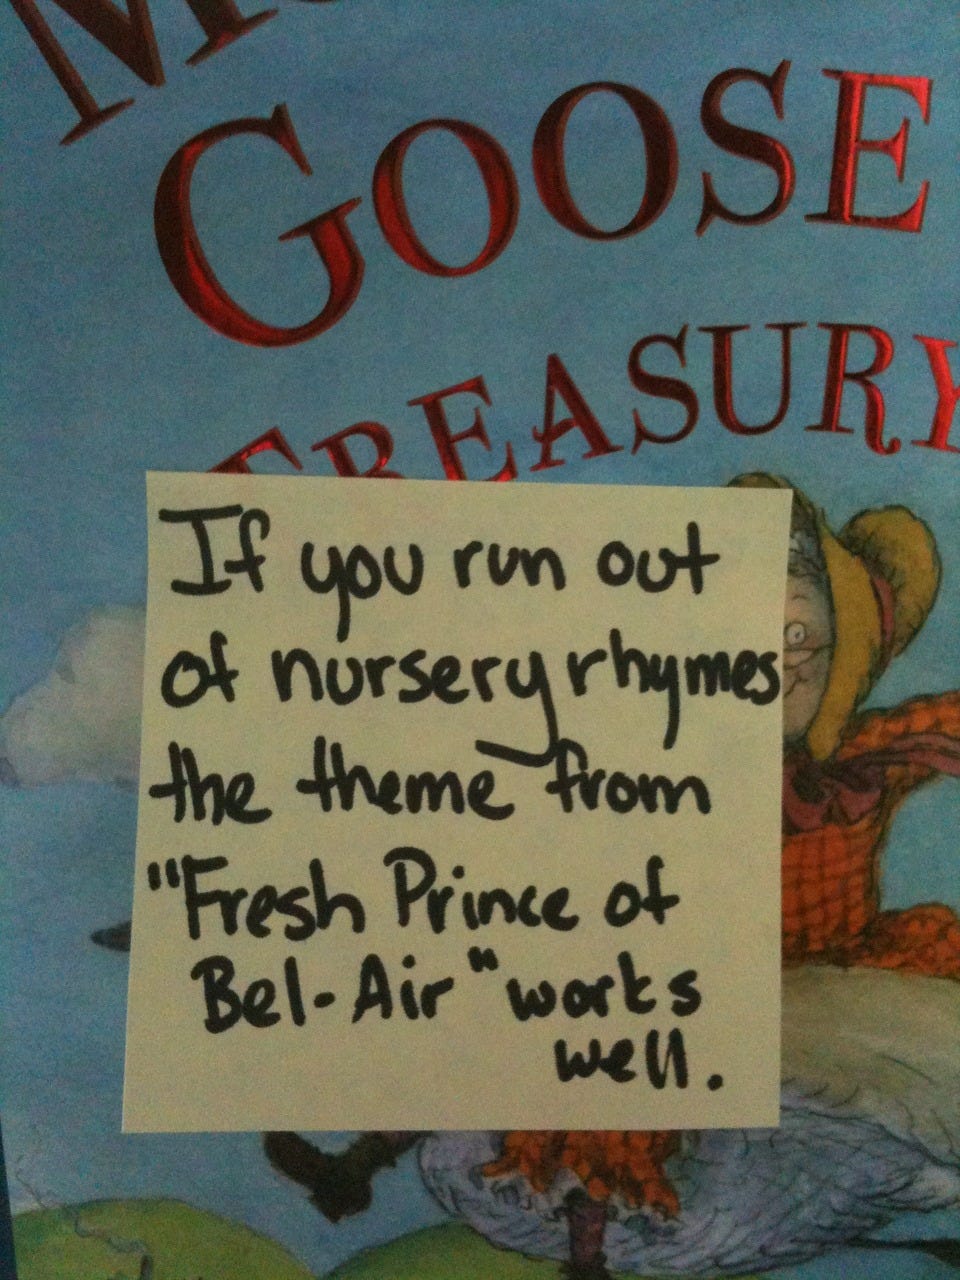 GOOSE
TREASURY
If you run out
of nursery rhymes
the theme from
"Fresh Prince of
Bel-Air" works
well.